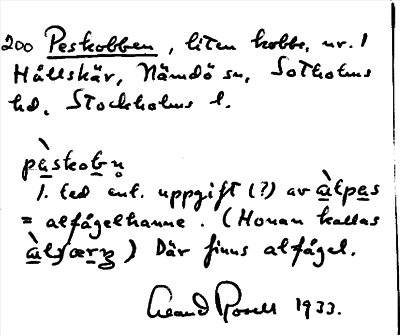 200 Peskobben, liten kobbe, nr. 1
Hållskär, Nämdö sn, Sotholms
hd, Stockholms l.
pàskobn̥
1. led enl. uppgift (?) av àlpas
= alfågelhanne. (Honan kallas
Där finns alfågel.
Rosell 1933.